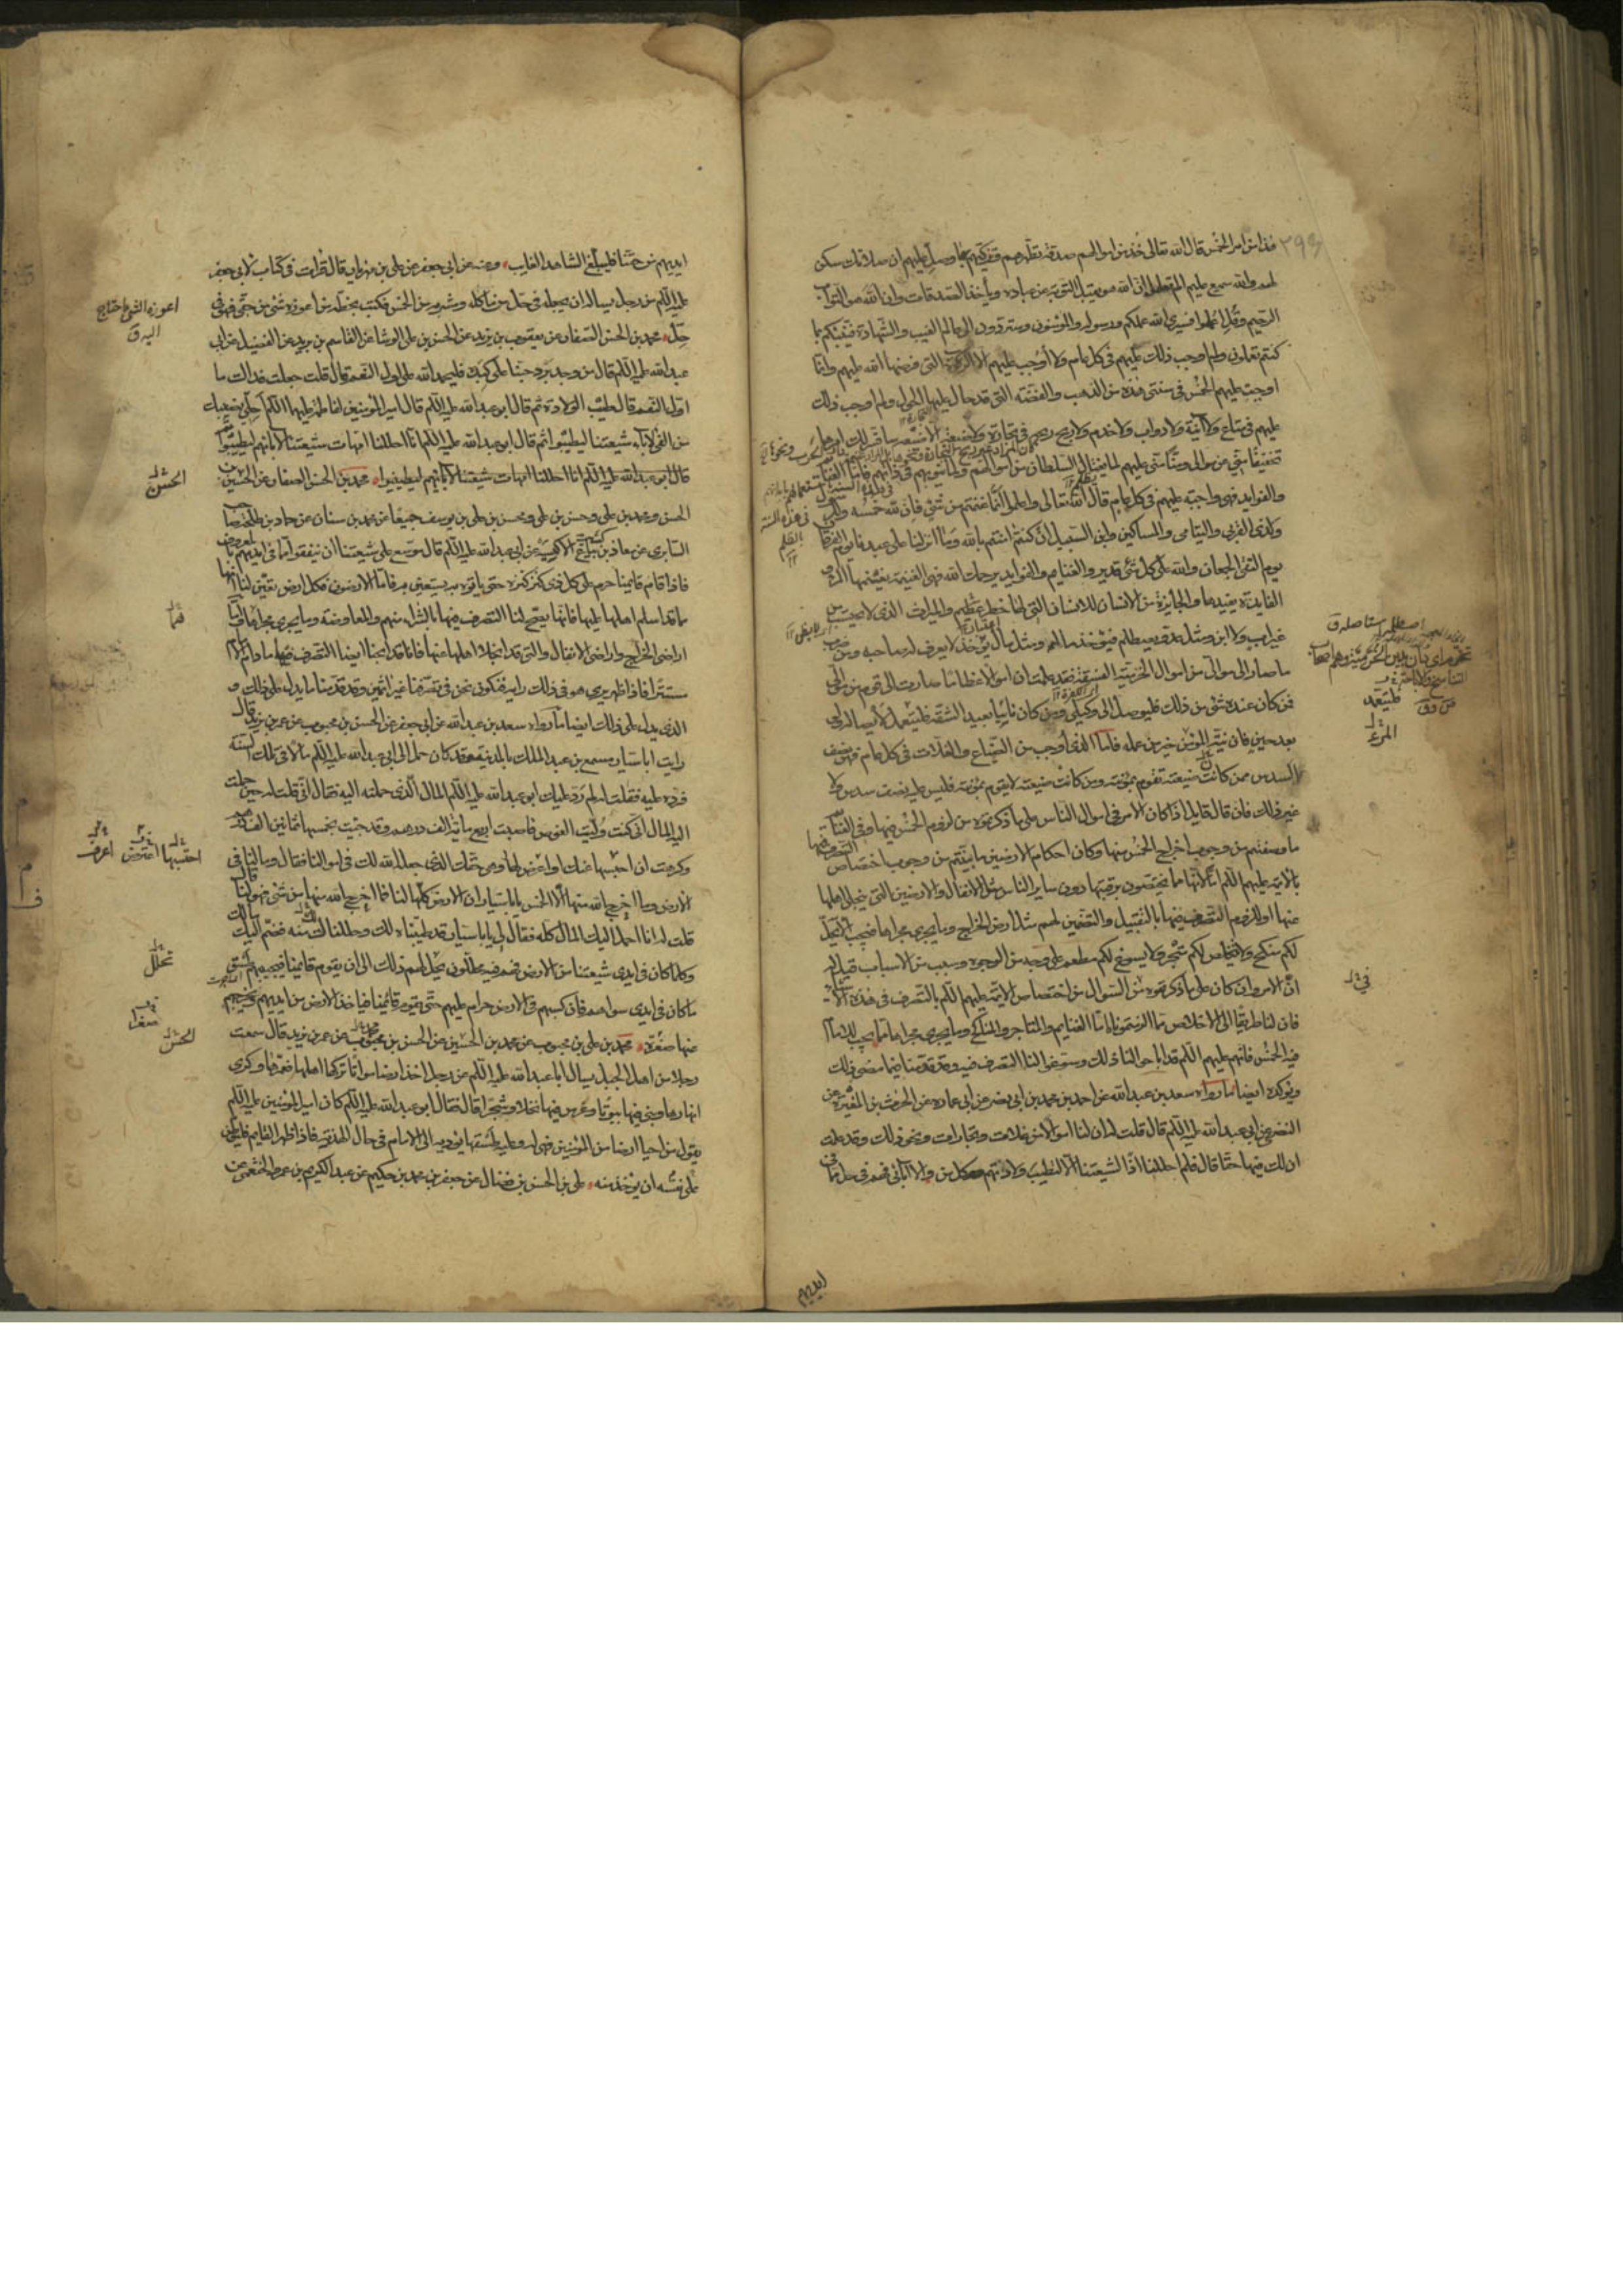 ٢٩٤
هذا من امر الخمس قال الله تعالى خذ من اموالهم صدقة تطهرهم وتزكيهم بها وصل عليهم ان صلاتك سكن
لهم والله سميع عليم الم يعلموا ان الله هو يقبل التوبة عن عباده ويأخذ الصدقات وان الله هو التواب
الرحيم وقل اعملوا فسيرى الله عملكم ورسوله والمؤمنون وستردون الى عالم الغيب والشهادة فينبئكم بما
كنتم تعملون ولم اوجب ذلك عليهم في كل عام ولا أوجب عليهم الا الزكوة التي فرضها الله عليهم وانما
اوجبت عليهم الخمس في سنتي هذه من الذهب والفضة التي قد حال عليها الحول ولم اوجب ذلك
عليهم في متاع ولا آنية ولا دواب ولا خدم ولا ربح ربحه في تجارة ولا ضيعة الا ضيعة سافسر لك امرها
تخفيفا مني عن موالي ومنا مني عليهم لما يغتال السلطان من اموالهم ولما ينوبهم في ذاتهم فاما الغنائم
والفوايد فهي واجبة عليهم في كل عام قال الله تعالى واعلموا انما غنمتم من شئ فان لله خمسه وللرسول
ولذي القربى واليتامى والمساكين وابن السبيل ان كنتم امنتم بالله وما انزلنا على عبدنا يوم الفرقان
يوم التقى الجمعان والله على كل شئ قدير والغنايم والفوايد يرحمك الله فهي الغنيمة يغنمها المرء و
الفايدة يفيدها والجايزة من الانسان للانسان التي لها خطر عظيم والميراث الذي لا يحتسب من
غير اب ولا ابن ومثل عدو يصطلم فيؤخذ ماله ومثل مال يؤخذ لا يعرف له صاحبه ومن ضرب
ما صار الى موالي من اموال الخرمية الفسقة فقد علمت ان اموالا عظاما صارت الى قوم من موالي
فمن كان عنده شئ من ذلك فليوصل الى وكيلي ومن كان نائيا بعيد الشقة فليتعمد لايصاله ولو
بعد حين فان نية المؤمن خير من عمله فاما الذي أوجب من الضياع والغلات في كل عام فهو نصف
السدس ممن كانت ضيعته تقوم بمؤنته ومن كانت ضيعته لا يقوم بمؤنته فليس عليه نصف سدس ولا
غير ذلك فان قال قايل اذا كان الامر في اموال الناس على ما ذكرتموه من لزوم الخمس فيها وفي الغنايم
ما وصفتم من وجوب اخراج الخمس منها وكان احكام الارضين ما بينتم من وجوب اختصاص التصرف فيها
بالائمة عليهم السلام اما لانها مما يختصون برقبتها دون ساير الناس مثل الانفال والارضين التي ينجلي اهلها
عنها او للزوم التصرف فيها بالتقبيل والتضمين لهم مثل ارض الخراج وما يجري مجراها فيجب الا يحل
لكم منكح ولا يتخلص لكم متجر ولا يسوغ لكم مطعم على وجه من الوجوه وسبب من الاسباب قيل له
ان الامر وان كان على ما ذكرتموه من السؤال من اختصاص الائمة عليهم السلام بالتصرف في هذه الاشياء
فان لنا طريقا الى الخلاص مما الزمتموناه اما الغنايم والمتاجر والمناكح وما يجري مجراها مما يجب للامام
فيه الخمس فانهم عليهم السلام قد اباحوا لنا ذلك وسوغوا لنا التصرف فيه وقد قدمنا فيما مضى ذلك
ويؤكده ايضا ما رواه سعد بن عبد الله عن احمد بن محمد بن ابي نصر عن ابي عماره عن الحرث بن المغيرة عن
النضري عن ابي عبد الله عليه السلام قال قلت له ان لنا اموالا من غلات وتجارات ونحو ذلك وقد علمت
ان لك فيها حقا قال فلم احللنا اذا لشيعتنا الا لتطيب ولادتهم وكل من والا آبائي فهم في حل مما في
ايديهم
نخ له
فليتعمد
ايديهم من حقنا فليبلغ الشاهد الغايب وعنه عن ابي جعفر عن علي بن مهزيار قال قرات في كتاب لابي جعفر
عليه السلام من رجل يساله ان يجعله في حل من ماكله ومشربه من الخمس فكتب بخطه من اعوزه شئ من حقي فهو في
حل محمد بن الحسن الصفار عن يعقوب بن يزيد عن الحسن بن علي الوشا عن القاسم بن بريد عن الفضيل عن ابي
عبد الله عليه السلام قال من وجد برد حبنا على كبده فليحمد الله على اول النعم قال قلت جعلت فداك ما
اول النعم قال طيب الولادة ثم قال ابو عبد الله عليه السلام قال امير المؤمنين لفاطمة عليهما السلام احلي نصيبك
من الفئ لآباء شيعتنا ليطيبوا ثم قال ابو عبد الله عليه السلام انا احللنا امهات شيعتنا لآبائهم ليطيبوا
قال ابو عبد الله عليه السلام انا احللنا امهات شيعتنا لآبائهم ليطيبوا محمد بن الحسن الصفار عن الحسين بن
الحسن ومحمد بن علي وحسن بن علي ومحسن بن علي بن يوسف جميعا عن محمد بن سنان عن حماد بن طلحة صاحب
السابري عن معاذ بن كثير بياع الاكسية عن ابي عبد الله عليه السلام قال موسع على شيعتنا ان ينفقوا مما في ايديهم بالمعروف
فاذا قام قايمنا حرم على كل ذي كنز كنزه حتى ياتوه به يستعين به فاما الارضون فكل ارض تعين لنا انها
مما قد اسلم اهلها عليها فانها يصح لنا التصرف فيها بالشراء منهم والمعاوضة وما يجري مجراها واما
اراضي الخراج واراضي الانفال والتي قد انجلا اهلها عنها فانا قد ابحنا ايضا التصرف فيها ما دام الامام
مستترا فاذا ظهر يرى هو في ذلك رايه فنكون نحن في تصرفنا غير آثمين وقد قدمنا ما يدل على ذلك و
الذي يدل على ذلك ايضا ما رواه سعد بن عبد الله عن ابي جعفر عن الحسن بن محبوب عن عمر بن يزيد قال
رايت ابا سيار مسمع بن عبد الملك بالمدينة وقد كان حمل الى ابي عبد الله عليه السلام مالا في تلك السنة
فرده عليه فقلت له لم رد عليك ابو عبد الله عليه السلام المال الذي حملته اليه فقال اني قلت له حين حملت
اليه المال اني كنت وليت الغوص فاصبت اربع مائة الف درهم وقد جئت بخمسها ثمانين الف درهم
وكرهت ان احبسها عنك او اعرض لها وهي حقك الذي جعله الله لك في اموالنا فقال وما لنا في
الارض وما اخرج الله منها الا الخمس يا ابا سيار ان الارض كلها لنا فما اخرج الله منها من شئ فهو لنا قال
قلت له انا احمل اليك المال كله فقال لي يا ابا سيار قد طيبناه لك وحللناك منه فضم اليك مالك
وكل ما كان في ايدي شيعتنا من الارض فهم فيه محللون يحل لهم ذلك الى ان يقوم قايمنا فيجبيهم طسق
ما كان في ايدي سواهم فان كسبهم من الارض حرام عليهم حتى يقوم قايمنا فياخذ الارض من ايديهم ويخرجهم
عنها صغرة محمد بن علي بن محبوب عن محمد بن الحسين عن الحسن بن محبوب عن عمر بن يزيد قال سمعت
رجلا من اهل الجبل يسال ابا عبد الله عليه السلام عن رجل اخذ ارضا مواتا تركها اهلها فعمرها وكرى
انهارها وبنى فيها بيوتا وغرس فيها نخلا وشجرا قال فقال ابو عبد الله عليه السلام كان امير المؤمنين عليه السلام
يقول من احيا ارضا من المؤمنين فهي له وعليه طسقها يؤديه الى الامام في حال الهدنة فاذا ظهر القايم فليوطن
على نفسه ان يؤخذ منه علي بن الحسن بن فضال عن جعفر بن محمد بن حكيم عن عبد الكريم بن عمرو الخثعمي عن
اعوزه الشئ احتاج
اليه ق
الحسن